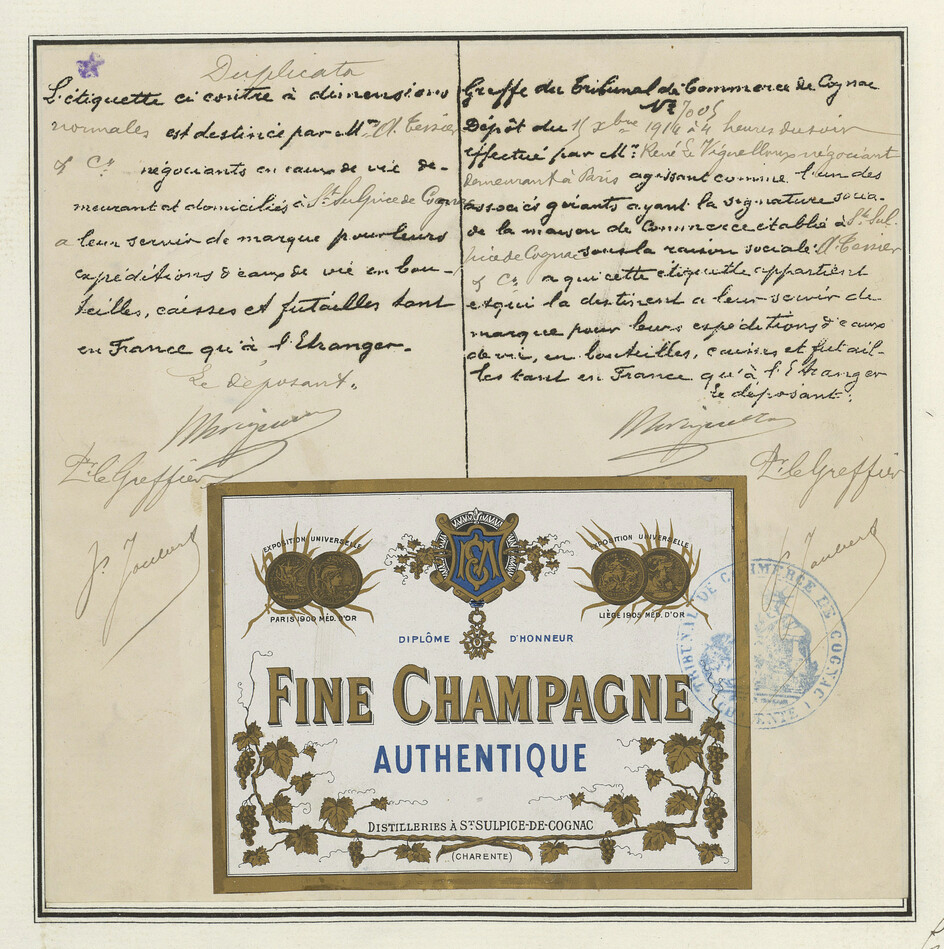 Duplicata
L'étiquette ci contre à dimensions
normales est destinée par Mrs A. Tessier
& Cie négociants en eaux de vie de-
meurant et domiciliés à St Sulpice de Cognac
a leur servir de marque pour leurs
expéditions d'eaux de vie en bou-
teilles, caisses et futailles tant
en France qu'à l'Etranger.
Le déposant.
Pr le Greffier
Greffe du Tribunal de Commerce de Cognac
No 7005
Dépôt du 15 Xbre 1914 à 4 heures du soir
effectué par Mr. René Le Vignelloux négociant
demeurant à Paris agissant comme l'un des
associés gérants ayant la signature socia-
de la maison de Commerce établie à St Sul-
pice de Cognac sous la raison sociale: A Tessier
& Cie a qui cette étiquette appartient
et qui la destinent a leur servir de
marque pour leurs expéditions d'eaux
de vie, en bouteilles, caisses et futail-
les tant en France qu'à l'Etranger
Le déposant:
Pr le Greffier
EXPOSITION UNIVERSELLE
PARIS 1900 MÉD. D'OR
EXPOSITION UNIVERSELLE
LIÈGE 1905 MÉD. D'OR
DIPLÔME D'HONNEUR
FINE CHAMPAGNE
AUTHENTIQUE
DISTILLERIES À ST SULPICE-DE-COGNAC
(CHARENTE)
TRIBUNAL DE COMMERCE DE COGNAC
CHARENTE